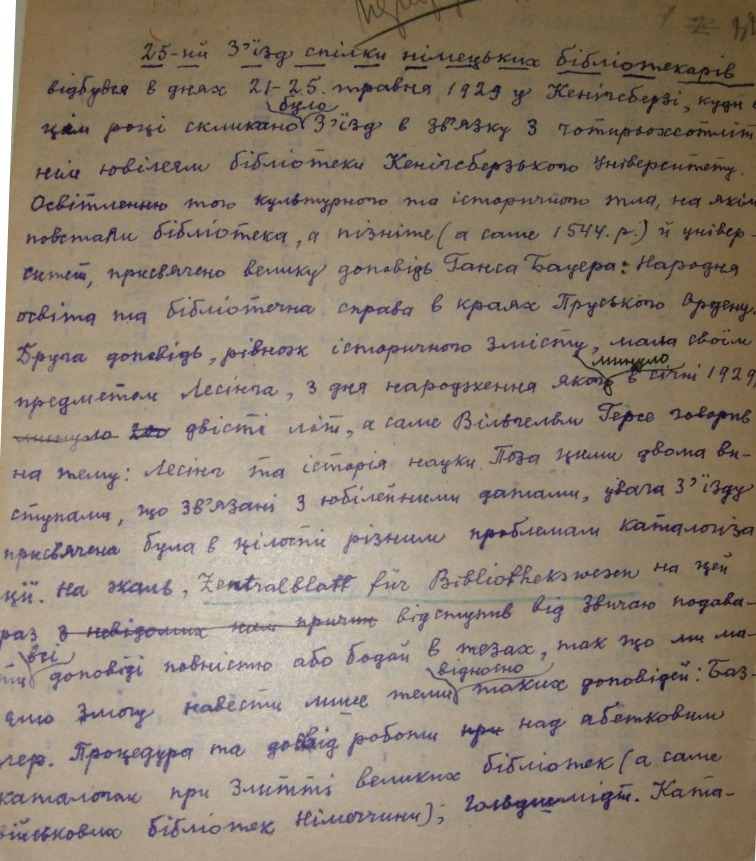 25-ий З'їзд спілки німецьких бібліотекарів
відбувся в днях 21-25. травня 1929 у Кенігсберзі, куди в
цім році скликано було З'їзд в зв'язку з чотирьохсотліт
нім ювілеєм бібліотеки Кенігсберзького Університету.
Освітленню того культурного та історичного тла, на якім
повстали бібліотека, а пізніте (а саме 1544. р.) й універ-
ситет, присвячено велику доповідь Ганса Бауера: Народня
освіта та бібліотечна справа в краях Пруського Ордену.
Друга доповідь, рівнож історичного змісту, мала своїм
предметом Лесінга, з дня народження якого минуло в січні 1929,
минуло 200 двісті літ, а саме Вільгельм Герсе говорив
на тему: Лесінг та історія науки. Поза цими двома ви-
ступами, що зв'язані з ювілейними датами, увага З'їзду
присвячена була в цілості різним проблемам каталогіза
ції. На жаль, Zentralblatt für Bibliothekswesen на цей
раз з невідомих нам причин відступив від звичаю подава-
ти всі доповіді повністю або бодай в тезах, так що ми ма-
ємо змогу навести лише теми відносно таких доповідей: Баз-
гер. Процедура та досвід роботи при над абетковим
каталогом при злитті великих бібліотек (а саме
військових бібліотек Німеччини); Гольдшмідт. Ката-